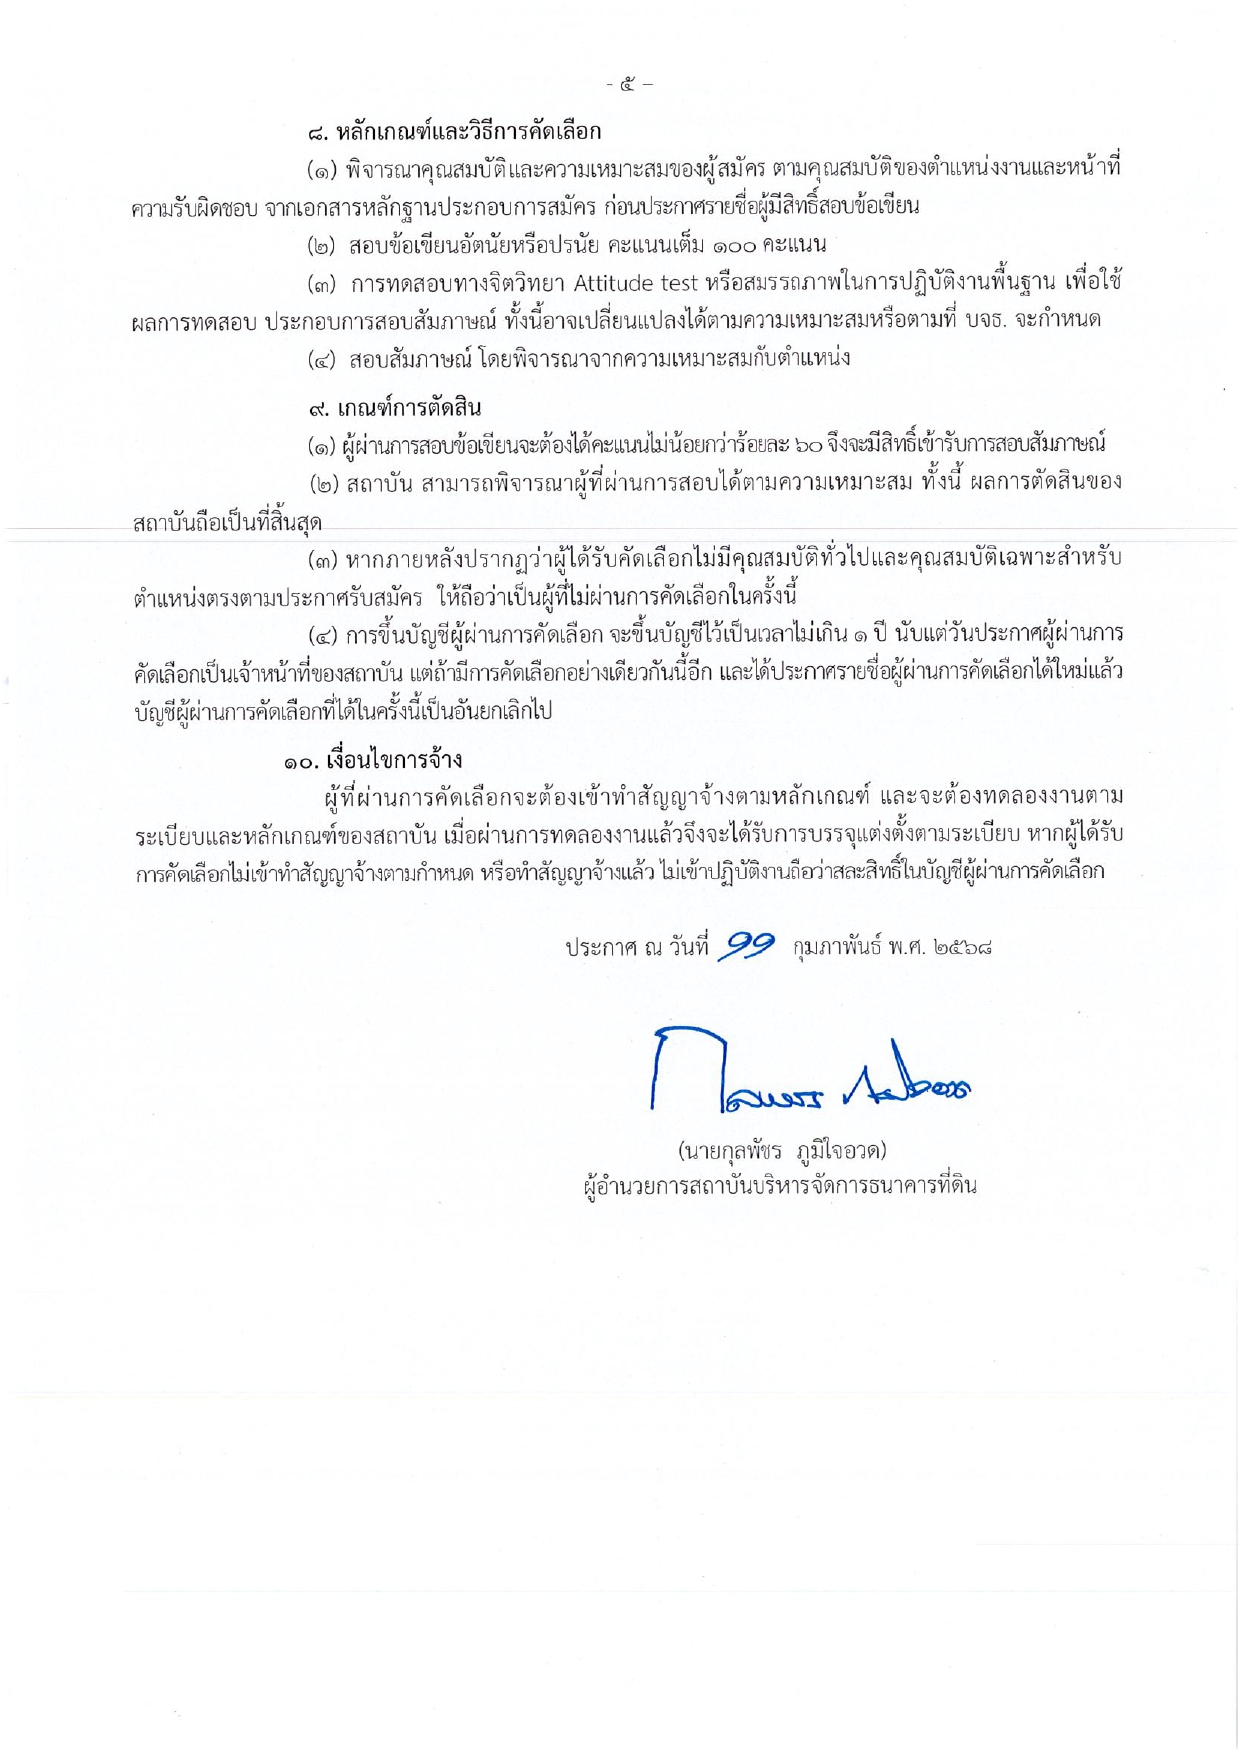 - ๕ –
๘. หลักเกณฑ์และวิธีการคัดเลือก
(๑) พิจารณาคุณสมบัติและความเหมาะสมของผู้สมัคร ตามคุณสมบัติของตำแหน่งงานและหน้าที่
ความรับผิดชอบ จากเอกสารหลักฐานประกอบการสมัคร ก่อนประกาศรายชื่อผู้มีสิทธิ์สอบข้อเขียน
(๒) สอบข้อเขียนอัตนัยหรือปรนัย คะแนนเต็ม ๑๐๐ คะแนน
(๓) การทดสอบทางจิตวิทยา Attitude test หรือสมรรถภาพในการปฏิบัติงานพื้นฐาน เพื่อใช้
ผลการทดสอบ ประกอบการสอบสัมภาษณ์ ทั้งนี้อาจเปลี่ยนแปลงได้ตามความเหมาะสมหรือตามที่ บจธ. จะกำหนด
(๔) สอบสัมภาษณ์ โดยพิจารณาจากความเหมาะสมกับตำแหน่ง
๙. เกณฑ์การตัดสิน
(๑) ผู้ผ่านการสอบข้อเขียนจะต้องได้คะแนนไม่น้อยกว่าร้อยละ ๖๐ จึงจะมีสิทธิ์เข้ารับการสอบสัมภาษณ์
(๒) สถาบัน สามารถพิจารณาผู้ที่ผ่านการสอบได้ตามความเหมาะสม ทั้งนี้ ผลการตัดสินของ
สถาบันถือเป็นที่สิ้นสุด
(๓) หากภายหลังปรากฏว่าผู้ได้รับคัดเลือกไม่มีคุณสมบัติทั่วไปและคุณสมบัติเฉพาะสำหรับ
ตำแหน่งตรงตามประกาศรับสมัคร ให้ถือว่าเป็นผู้ที่ไม่ผ่านการคัดเลือกในครั้งนี้
(๔) การขึ้นบัญชีผู้ผ่านการคัดเลือก จะขึ้นบัญชีไว้เป็นเวลาไม่เกิน ๑ ปี นับแต่วันประกาศผู้ผ่านการ
คัดเลือกเป็นเจ้าหน้าที่ของสถาบัน แต่ถ้ามีการคัดเลือกอย่างเดียวกันนี้อีก และได้ประกาศรายชื่อผู้ผ่านการคัดเลือกได้ใหม่แล้ว
บัญชีผู้ผ่านการคัดเลือกที่ได้ในครั้งนี้เป็นอันยกเลิกไป
๑๐. เงื่อนไขการจ้าง
ผู้ที่ผ่านการคัดเลือกจะต้องเข้าทำสัญญาจ้างตามหลักเกณฑ์ และจะต้องทดลองงานตาม
ระเบียบและหลักเกณฑ์ของสถาบัน เมื่อผ่านการทดลองงานแล้วจึงจะได้รับการบรรจุแต่งตั้งตามระเบียบ หากผู้ได้รับ
การคัดเลือกไม่เข้าทำสัญญาจ้างตามกำหนด หรือทำสัญญาจ้างแล้ว ไม่เข้าปฏิบัติงานถือว่าสละสิทธิ์ในบัญชีผู้ผ่านการคัดเลือก
ประกาศ ณ วันที่ ๑๑ กุมภาพันธ์ พ.ศ. ๒๕๖๘
(นายกุลพัชร ภูมิใจอวด)
ผู้อำนวยการสถาบันบริหารจัดการธนาคารที่ดิน